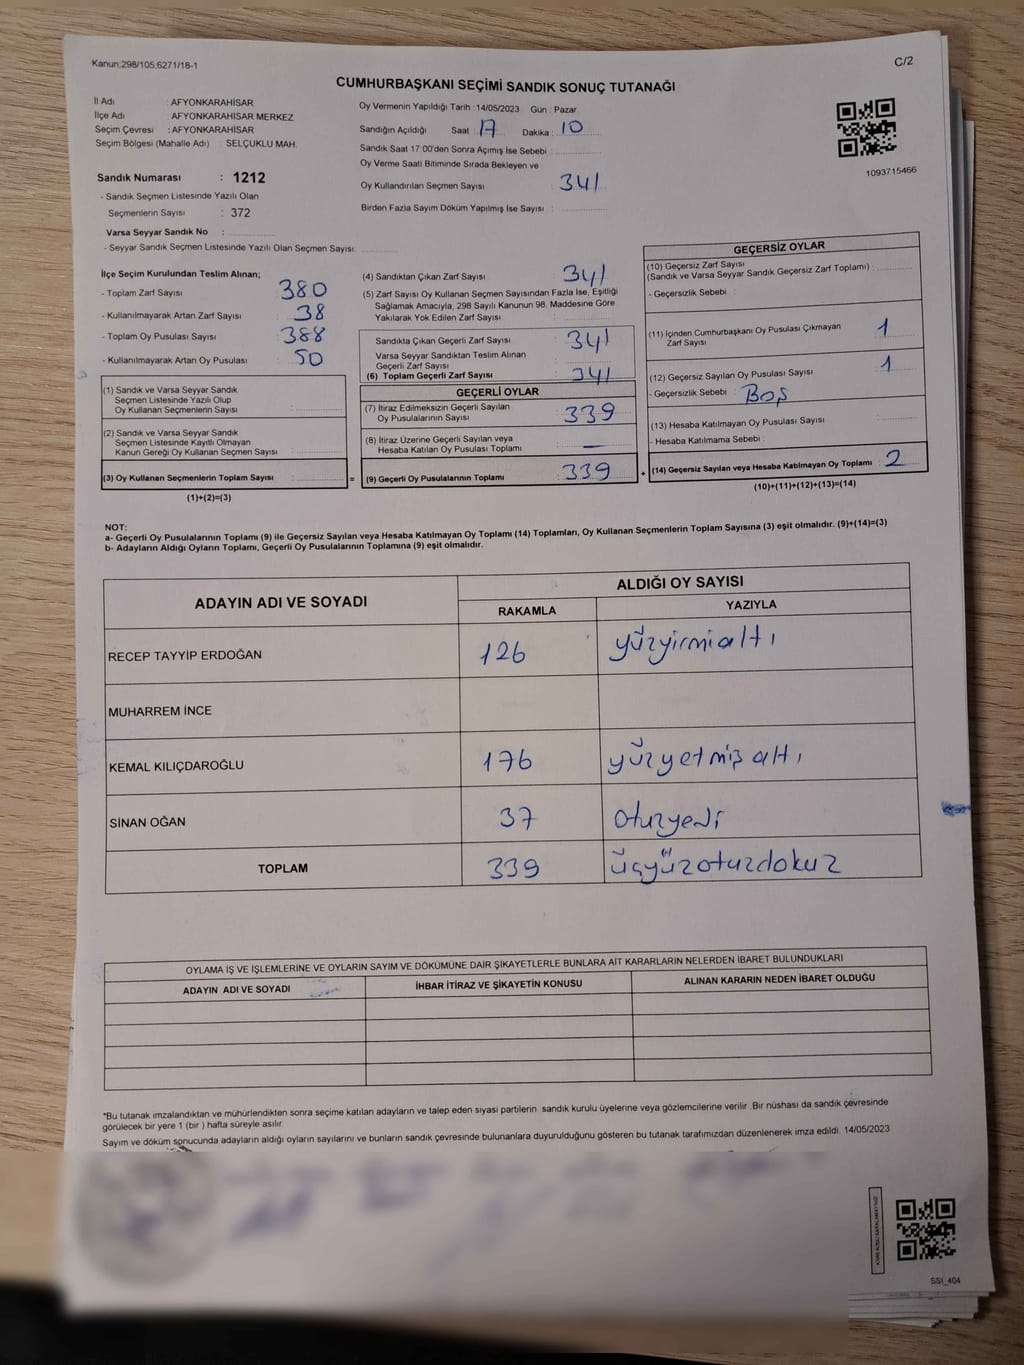 Kanun:298/105,6271/18-1
C/2
CUMHURBAŞKANI SEÇİMİ SANDIK SONUÇ TUTANAĞI
İl Adı : AFYONKARAHİSAR
İlçe Adı : AFYONKARAHİSAR MERKEZ
Seçim Çevresi : AFYONKARAHİSAR
Seçim Bölgesi (Mahalle Adı) : SELÇUKLU MAH.
Sandık Numarası : 1212
- Sandık Seçmen Listesinde Yazılı Olan
Seçmenlerin Sayısı : 372
Varsa Seyyar Sandık No :
- Seyyar Sandık Seçmen Listesinde Yazılı Olan Seçmen Sayısı:
Oy Vermenin Yapıldığı Tarih : 14/05/2023 Gün : Pazar
Sandığın Açıldığı Saat : 17 Dakika : 10
Sandık Saat 17:00'den Sonra Açımış İse Sebebi :
Oy Verme Saati Bitiminde Sırada Bekleyen ve
Oy Kullandırılan Seçmen Sayısı 341
Birden Fazla Sayım Döküm Yapılmış İse Sayısı :
1093715466
İlçe Seçim Kurulundan Teslim Alınan;
- Toplam Zarf Sayısı 380
- Kullanılmayarak Artan Zarf Sayısı 38
- Toplam Oy Pusulası Sayısı 388
- Kullanılmayarak Artan Oy Pusulası 50
(1) Sandık ve Varsa Seyyar Sandık
Seçmen Listesinde Yazılı Olup
Oy Kullanan Seçmenlerin Sayısı :
(2) Sandık ve Varsa Seyyar Sandık
Seçmen Listesinde Kayıtlı Olmayan
Kanun Gereği Oy Kullanan Seçmen Sayısı :
(3) Oy Kullanan Seçmenlerin Toplam Sayısı :
(1)+(2)=(3)
(4) Sandıktan Çıkan Zarf Sayısı 341
(5) Zarf Sayısı Oy Kullanan Seçmen Sayısından Fazla İse, Eşitliği
Sağlamak Amacıyla; 298 Sayılı Kanunun 98. Maddesine Göre
Yakılarak Yok Edilen Zarf Sayısı :
Sandıkta Çıkan Geçerli Zarf Sayısı 341
Varsa Seyyar Sandıktan Teslim Alınan
Geçerli Zarf Sayısı
(6) Toplam Geçerli Zarf Sayısı 341
GEÇERLİ OYLAR
(7) İtiraz Edilmeksizin Geçerli Sayılan
Oy Pusulalarının Sayısı 339
(8) İtiraz Üzerine Geçerli Sayılan veya
Hesaba Katılan Oy Pusulası Toplamı —
= (9) Geçerli Oy Pusulalarının Toplamı 339
GEÇERSİZ OYLAR
(10) Geçersiz Zarf Sayısı
(Sandık ve Varsa Seyyar Sandık Geçersiz Zarf Toplamı) :
- Geçersizlik Sebebi :
(11) İçinden Cumhurbaşkanı Oy Pusulası Çıkmayan
Zarf Sayısı 1
(12) Geçersiz Sayılan Oy Pusulası Sayısı 1
- Geçersizlik Sebebi : BOŞ
(13) Hesaba Katılmayan Oy Pusulası Sayısı
- Hesaba Katılmama Sebebi :
+ (14) Geçersiz Sayılan veya Hesaba Katılmayan Oy Toplamı 2
(10)+(11)+(12)+(13)=(14)
NOT:
a- Geçerli Oy Pusulalarının Toplamı (9) ile Geçersiz Sayılan veya Hesaba Katılmayan Oy Toplamı (14) Toplamları, Oy Kullanan Seçmenlerin Toplam Sayısına (3) eşit olmalıdır. (9)+(14)=(3)
b- Adayların Aldığı Oyların Toplamı, Geçerli Oy Pusulalarının Toplamına (9) eşit olmalıdır.
ADAYIN ADI VE SOYADI
ALDIĞI OY SAYISI
RAKAMLA YAZIYLA
RECEP TAYYİP ERDOĞAN 126 yüzyirmialtı
MUHARREM İNCE
KEMAL KILIÇDAROĞLU 176 yüzyetmişaltı
SİNAN OĞAN 37 otuzyedi
TOPLAM 339 üçyüzotuzdokuz
OYLAMA İŞ VE İŞLEMLERİNE VE OYLARIN SAYIM VE DÖKÜMÜNE DAİR ŞİKAYETLERLE BUNLARA AİT KARARLARIN NELERDEN İBARET BULUNDUKLARI
ADAYIN ADI VE SOYADI İHBAR İTİRAZ VE ŞİKAYETİN KONUSU ALINAN KARARIN NEDEN İBARET OLDUĞU
*Bu tutanak imzalandıktan ve mühürlendikten sonra seçime katılan adayların ve talep eden siyasi partilerin sandık kurulu üyelerine veya gözlemcilerine verilir .Bir nüshası da sandık çevresinde
görülecek bir yere 1 (bir ) hafta süreyle asılır.
Sayım ve döküm sonucunda adayların aldığı oyların sayılarını ve bunların sandık çevresinde bulunanlara duyurulduğunu gösteren bu tutanak tarafımızdan düzenlenerek imza edildi. 14/05/2023
SSI_404